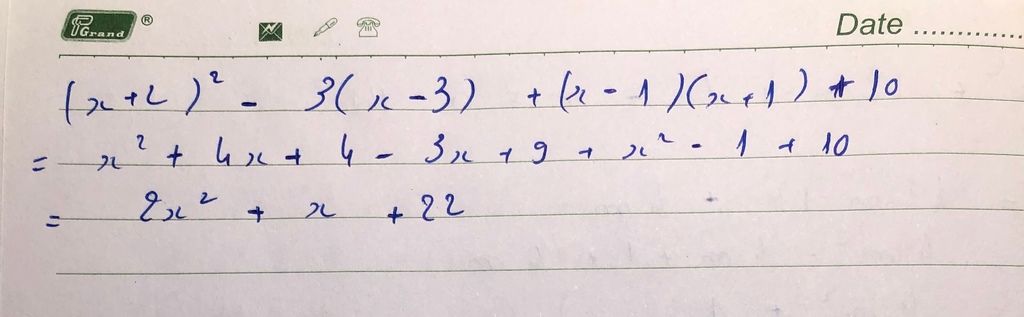 Grand ®
Date ............
(x+2)² - 3(x-3) + (x-1)(x+1) + 10
= x² + 4x + 4 - 3x + 9 + x² - 1 + 10
= 2x² + x + 22